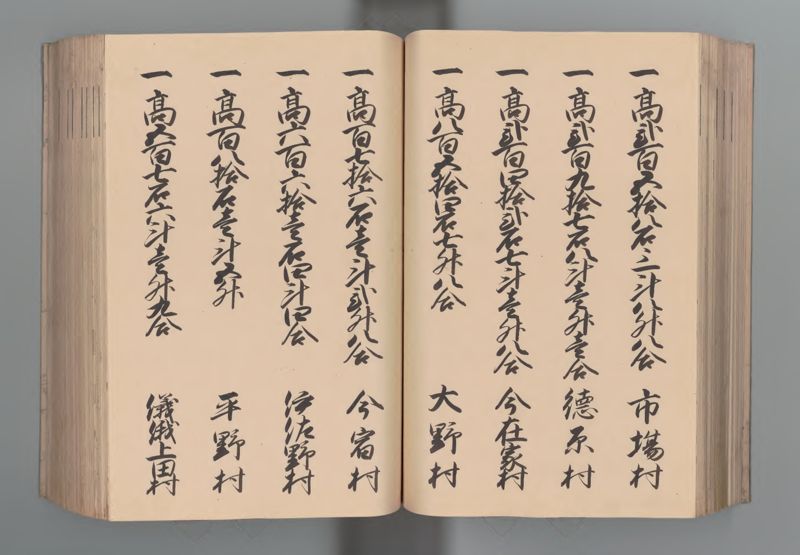 一高弐百五拾八石三斗八升八合 市場村
一高弐百九拾七石八斗壱升壱合 徳原村
一高弐百四拾弐石七斗壱升八合 今在家村
一高八百五拾四石七升八合 大野村
一高百七拾六石壱斗弐升八合 今宿村
一高六百六拾壱石四斗四合 伊佐野村
一高百八拾石壱斗五升 平野村
一高五百七石六斗壱升九合 儀俄上田村